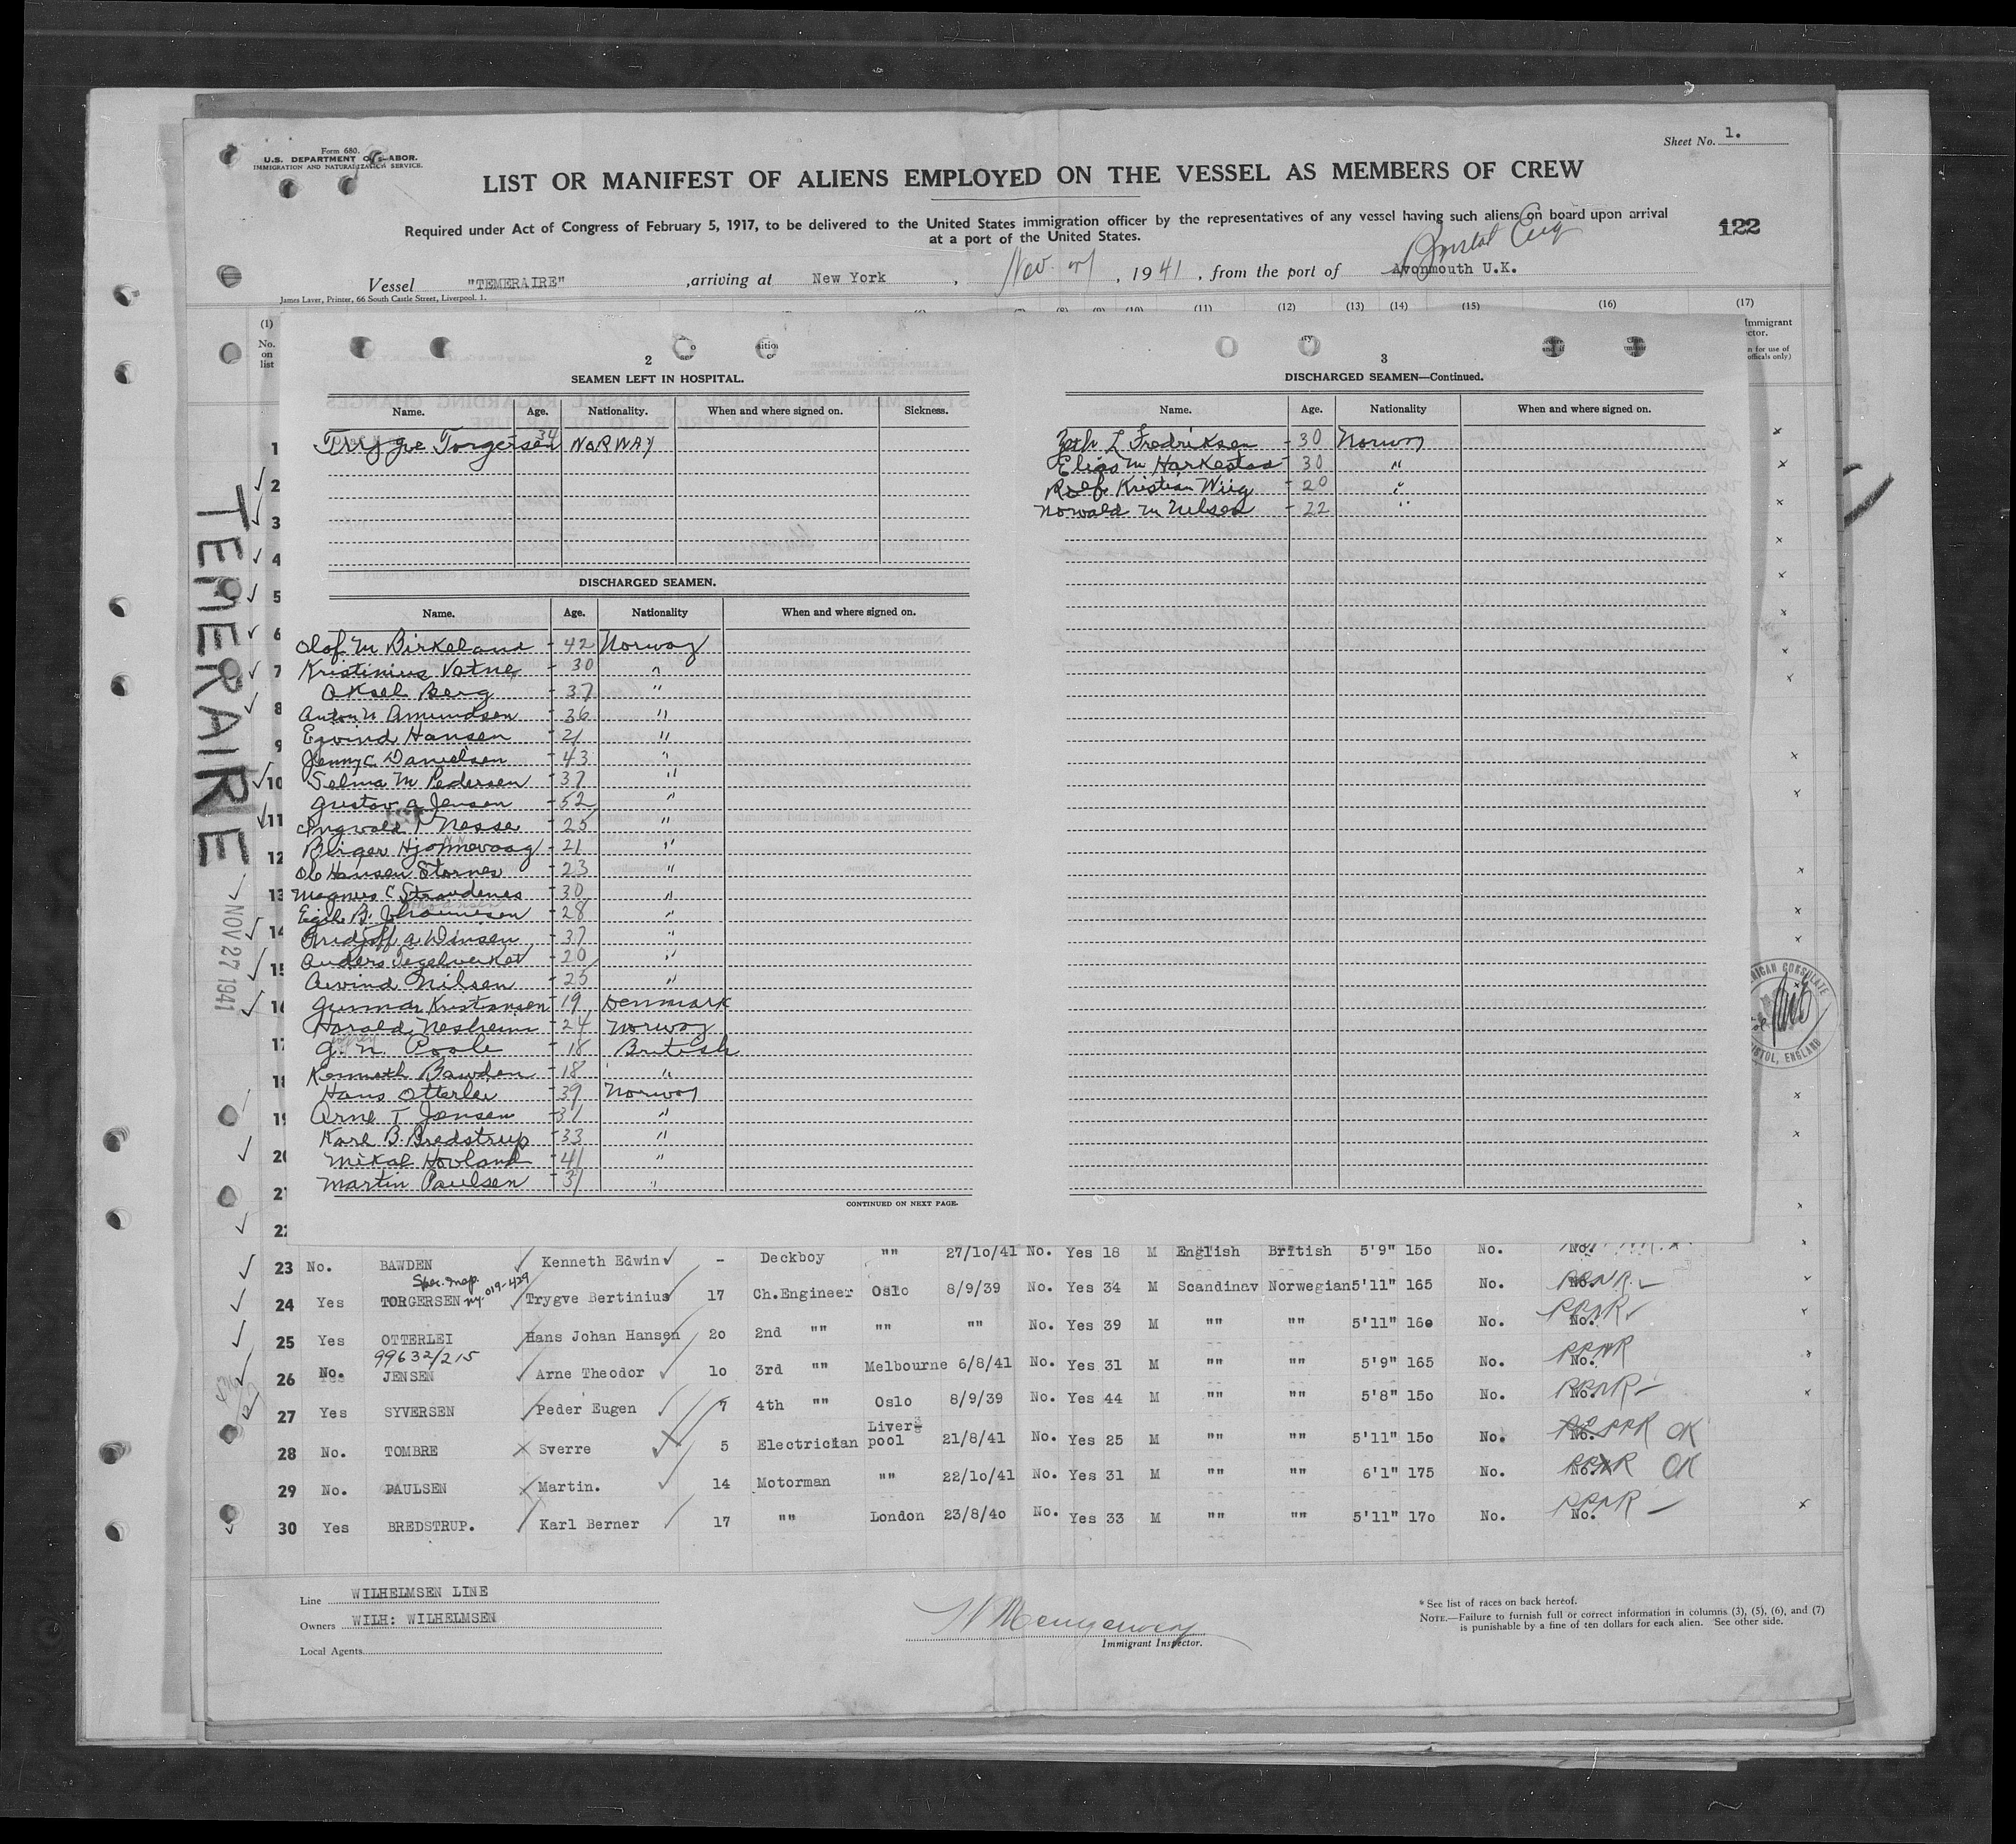 Sheet No. 1.
Form 680.
U.S. DEPARTMENT OF LABOR.
IMMIGRATION AND NATURALIZATION SERVICE.
LIST OR MANIFEST OF ALIENS EMPLOYED ON THE VESSEL AS MEMBERS OF CREW
Required under Act of Congress of February 5, 1917, to be delivered to the United States immigration officer by the representatives of any vessel having such aliens on board upon arrival
at a port of the United States.
122
Bristol Eng
Vessel "TEMERAIRE" ,arriving at New York , Nov. 27 , 1941 , from the port of Avonmouth U.K.
James Laver, Printer, 66 South Castle Street, Liverpool. 1.
(1) (11) (12) (13) (14) (15) (16) (17)
No.
on
list
TEMERAIRE
NOV 27 1941
2
SEAMEN LEFT IN HOSPITAL.
Name. Age. Nationality. When and where signed on. Sickness.
Trygve Torgersen 34 NORWAY
DISCHARGED SEAMEN.
Name. Age. Nationality When and where signed on.
Olaf M Birkeland - 42 Norway
Kristinius Vatne - 30 "
Aksel Berg - 37 "
Anton N Amundsen - 36 "
Eivind Hansen - 21 "
Jenny C. Danielsen - 43 "
Selma M Pedersen - 37 "
Gustav A Jensen - 52 "
Ingvald Nesse - 25 "
Birger Hjönnevaag - 21 "
Ole Hansen Stornes - 23 "
Magnus C Strandenes - 30 "
Egil B. Johannesen - 28 "
Fridtjoff A. - 37 "
Anders Tegelverket - 20 "
Arvind Nilsen - 25 "
Gunnar Kristiansen - 19 Denmark
Harald Nesheim - 24 Norway
G. N. Poole - 18 British
Kenneth Bawden - 18 "
Hans Otterlei - 39 Norway
Arne T Jensen - 31 "
Karl B. Bredstrup - 33 "
Mikal Hovland - 41 "
Martin Paulsen - 31 "
CONTINUED ON NEXT PAGE.
3
DISCHARGED SEAMEN—Continued.
Name. Age. Nationality When and where signed on.
L Fredriksen - 30 Norway
Elias M Harkestad - 30 "
Rolf Kristian Wiig - 20 "
Norvald M Nilsen - 22 "
1
2
3
4
5
6
7
8
9
10
11
12
13
14
15
16
17
18
19
20
21
22
23 No. BAWDEN Kenneth Edwin - Deckboy "" 27/10/41 No. Yes 18 M English British 5'9" 150 No. No.
Spec. Insp. ny. 019-429
24 Yes TORGERSEN Trygve Bertinius 17 Ch.Engineer Oslo 8/9/39 No. Yes 34 M Scandinav Norwegian 5'11" 165 No. No.
25 Yes OTTERLEI Hans Johan Hansen 20 2nd "" "" "" No. Yes 39 M "" "" 5'11" 160 No. No.
99632/215
26 No. JENSEN Arne Theodor 10 3rd "" Melbourne 6/8/41 No. Yes 31 M "" "" 5'9" 165 No. No.
27 Yes SYVERSEN Peder Eugen 9 4th "" Oslo 8/9/39 No. Yes 44 M "" "" 5'8" 150 No. No.
28 No. TOMBRE Sverre 5 Electrician Liverpool 21/8/41 No. Yes 25 M "" "" 5'11" 150 No. No. OK
29 No. PAULSEN Martin. 14 Motorman "" 22/10/41 No. Yes 31 M "" "" 6'1" 175 No. No. OK
30 Yes BREDSTRUP. Karl Berner 17 "" London 23/8/40 No. Yes 33 M "" "" 5'11" 170 No. No.
Line WILHELMSEN LINE
Owners WILH: WILHELMSEN
Local Agents
Immigrant Inspector.
* See list of races on back hereof.
NOTE.—Failure to furnish full or correct information in columns (3), (5), (6), and (7)
is punishable by a fine of ten dollars for each alien. See other side.